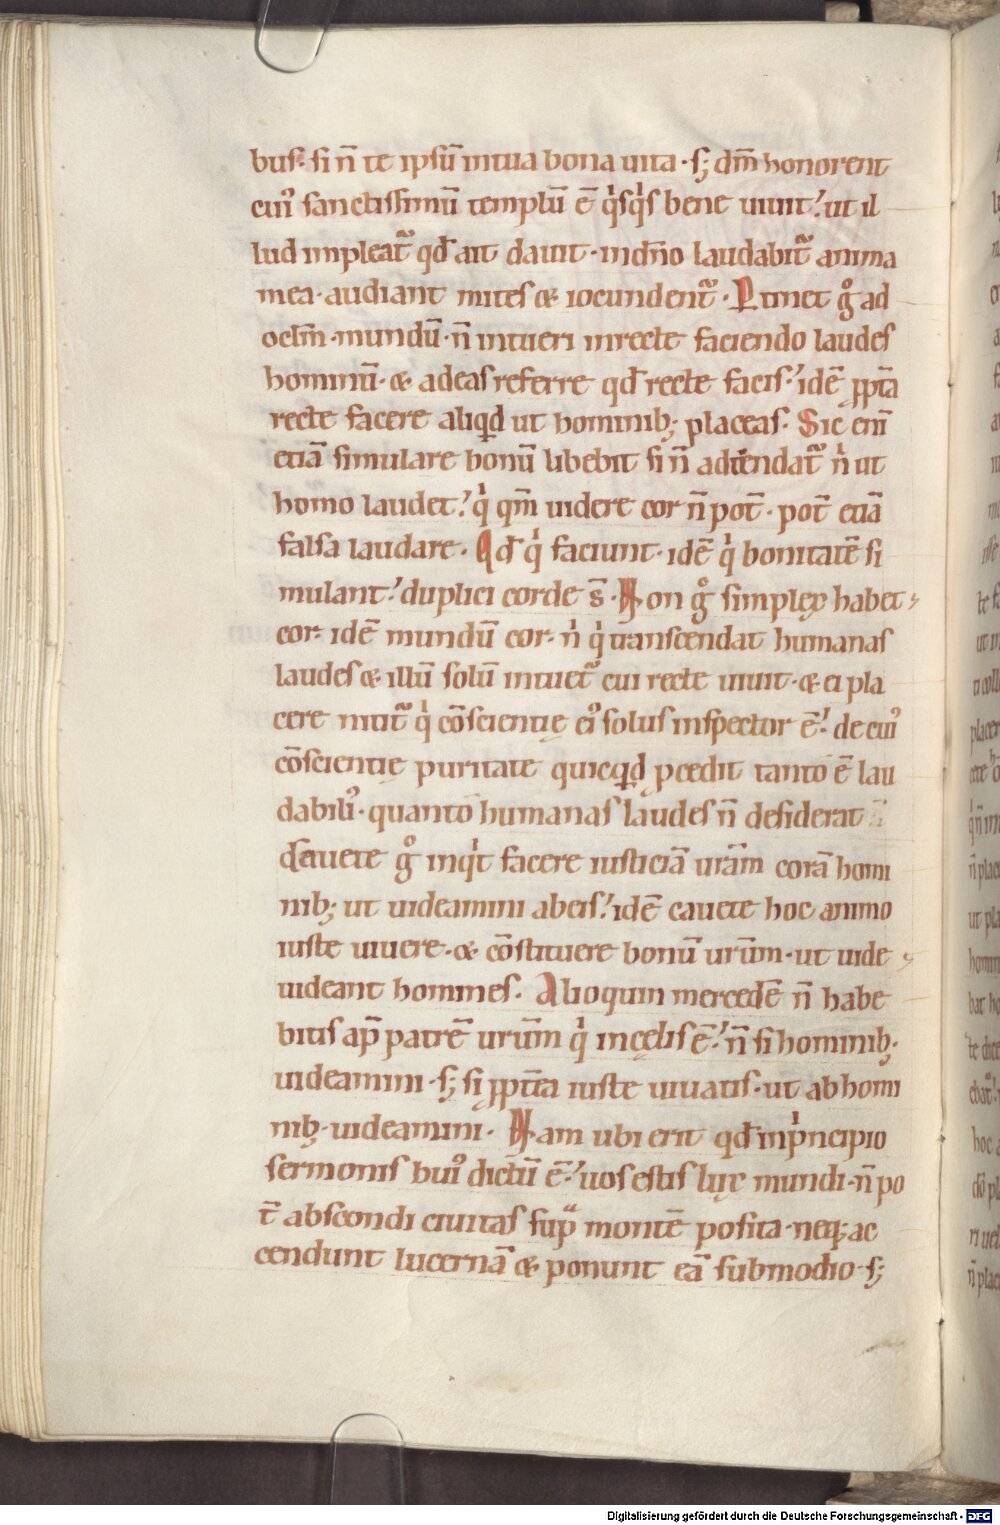 buſ· ſi n̄ te ipſū in tua bona uita · ſ; dm̄ honorent
cuiꝰ ſanctiſſimū templū ē qͥſqͥſ bene uiuit!ut il
lud impleat᷑ qđ ait dauit · in dn̄o laudabit᷑ anima
mea · audiant miteſ & iocundent᷑ · Ptinet gͦ ad
oclm̄ · mundū · n̄ intueri in recte faciendo laudeſ
hominū · & ad eaſ referre qđ recte faciſ!idē ꝓpt̄a
recte facere aliqd ut hominib; placeaſ · Sic eni̅
etiā ſimulare bonū libebit ſi n̄ adtendat᷑ nͥ ut
homo laudet!qͥ qm̄ uidere cor n̄ pot̄ · pot̄ etiā
falſa laudare · Qđ qͥ faciunt · idē qͥ bonitatē ſi
mulant!duplici corde s̄ · Non gͦ ſimplex habet
cor · idē mundū cor · nͥ qͥ tranſcendat humanaſ
laudeſ & illū ſolū intuet᷑ cui recte uiuit · & ei pla
cere nitit᷑ qͥ cōſcientię eiꝰ ſoluſ inſpector ē!de cuiꝰ
cōſcientię puritate quicqd ꝓcedit tanto ē lau
dabiliꝰ · quanto humanaſ laudeſ n̄ deſiderat
Cauete gͦ inqͥt facere iuſticiā urām corā homi
nib; ut uideamini ab eiſ!idē cauete hoc animo
iuſte uiuere · & cōſtituere bonū urūm · ut uide
uideant homineſ · Alioquin mercedē n̄ habe
bitiſ ap̄ patrē urūm qͥ in cęliſ ē!n̄ ſi hominib;
uideamini · ſ; ſi ꝓpt̄ea iuſte uiuatiſ · ut ab homi
nib; uideamini · Nam ubi erit qđ in pͥncipio
ſermoniſ huiꝰ dictū ē!uoſ eſtiſ lux mundi · n̄ po
t̄ abſcondi ciuitaſ ſupͣ montē poſita · neq; ac
cendunt lucernā & ponunt eā ſub modio · ſ;
Digitalisierung gefördert durch die Deutsche Forschungsgemeinschaft - DFG